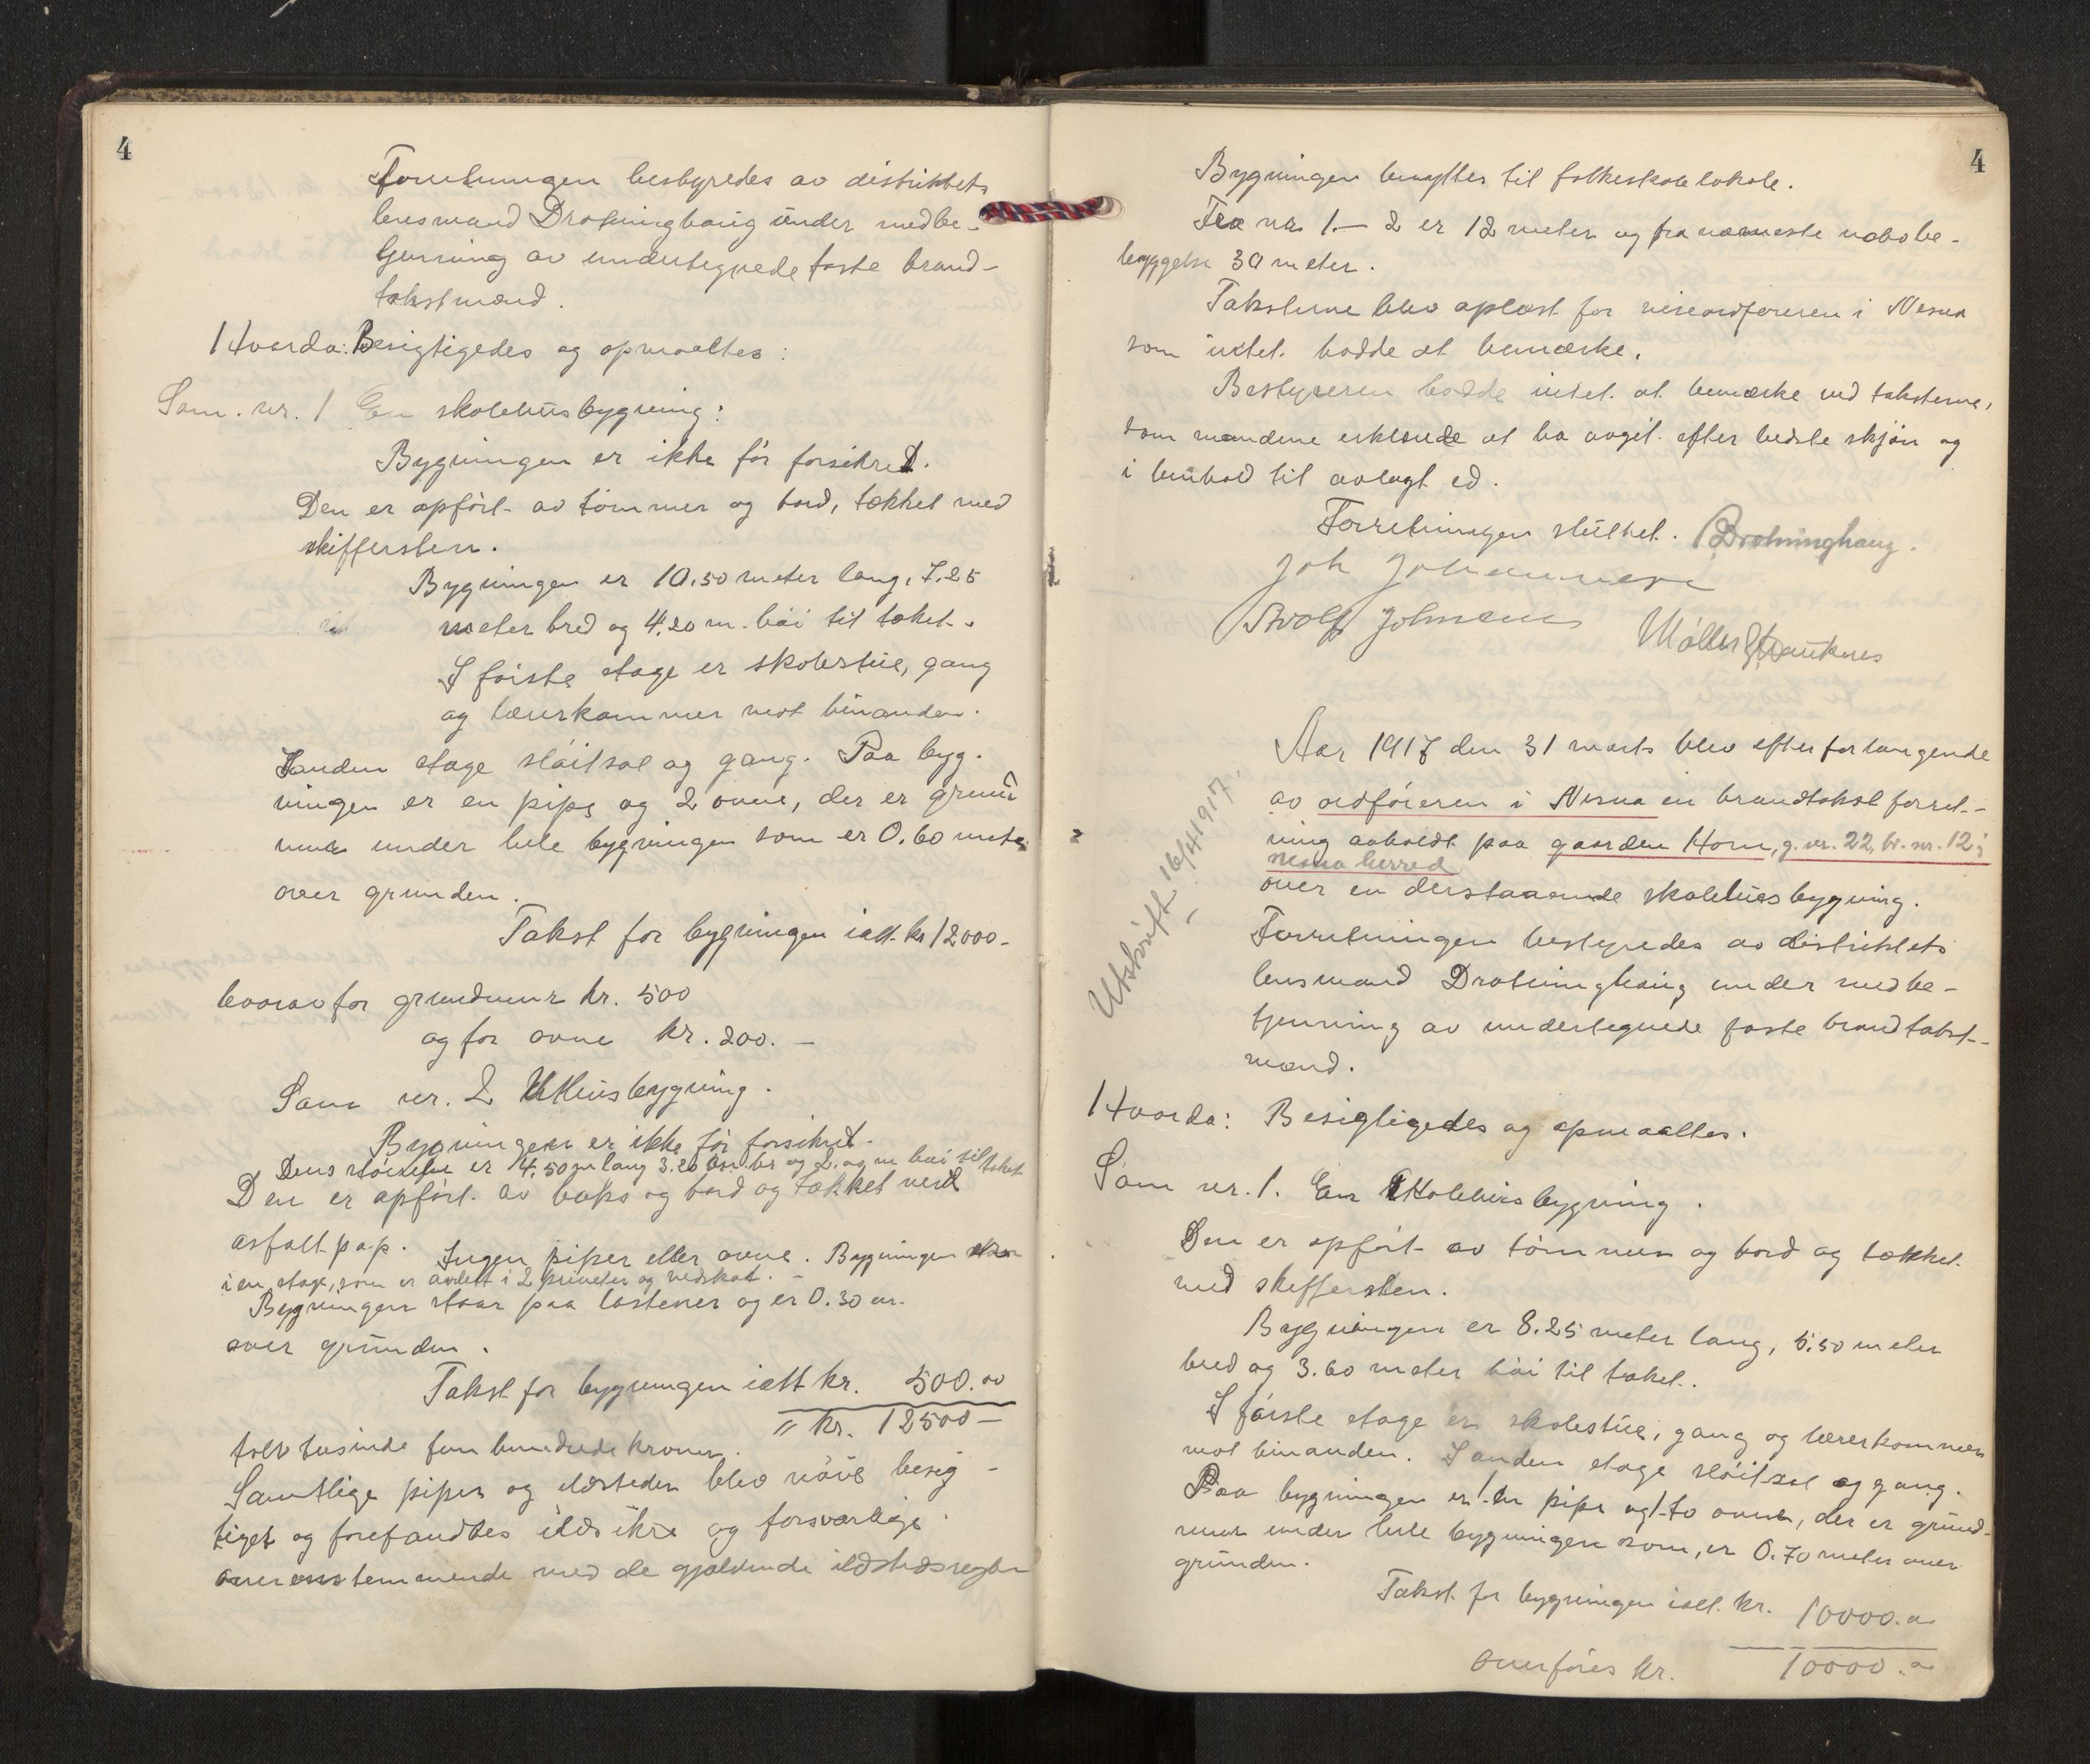 4
Forretningen bestyredes av distriktets
lensmand Drotninghaug under medbe-
tjening av undertegnede faste brand-
takstmænd.
Hvorda: Besigtigedes og opmaaltes:
Som. nr. 1 En skolehusbygning:
Bygningen er ikke før forsikred.
Den er opført av tømmer og bord, tækket med
skiffersten.
Bygningen er 10.50 meter lang, 7.25
meter bred og 4.20 m. høi til taket.
I første etage er skolestue, gang
og lærerkammer mot hinanden.
I anden etage sløitsal og gang. Paa byg-
ningen er en pipe og 2 ovne, der er grund
mur under hele bygningen som er 0.60 meter
over grunden.
Takst for bygningen ialt kr 12000-
hvorav for grundmur kr. 500
og for ovne kr. 200. -
Som nr. 2 Uthusbygning.
Bygningen er ikke før forsikret.
Dens størrelse er 4.50 m lang 3.20 m. br og 2. m høi til taket
Den er opført av bord og tækket med
asfaltpap. Ingen piper eller ovne. Bygningen er
i en etage, som er avdelt i 2 priveter og vedskot. -
Bygningen staar paa løstener og er 0.30 m.
over grunden.
Takst for bygningen ialt kr. 500.00
" kr. 12500 -
tolv tusinde fem hundrede kroner.
Samtlige piper og ildsteder blev nøie besig-
tiget og forefandtes ildsikre og forsvarlige
overensstemmende med de gjældende ildstedsregler
4
Bygningen benyttes til folkeskolelokale.
Fra nr. 1 - 2 er 12 meter og fra nærmeste nabobe-
byggelse 30 meter.
Taksterne blev oplæst for viseordføreren i Nesna
som intet hadde at bemærke.
Bestyreren hadde intet at bemærke ved taksterne,
som mændene erklærede at ha avgit efter bedste skjøn og
i henhold til avlagt ed.
Forretningen sluttet. Drotninghaug.
Joh Johannesen
Johnsens Møller Hauknes
Aar 1917 den 31 marts blev efter forlangende
av ordføreren i Nesna en brandtakst forret-
ning avholdt paa gaarden Horn, g. nr. 22, br. nr. 12 i
Nesna herred
over en derstaaende skolehusbygning.
Utskrift 16/4 1917.
Forretningen bestyredes av distriktets
lensmand Drotninghaug under medbe-
tjening av undertegnede faste brandtakst-
mænd.
Hvorda: Besigtigedes og opmaaltes.
Som nr. 1. En Skolehusbygning.
Den er opført av tømmer og bord og tækket
med skiffersten.
Bygningen er 8.25 meter lang, 5.50 meter
bred og 3.60 meter høi til taket.
I første etage er skolestue, gang og lærerkammer
mot hinanden. I anden etage sløitsal og gang.
Paa bygningen er 1. en pipe og to ovne, der er grund-
mur under hele bygningen som, er 0.70 meter over
grunden.
Takst for bygningen ialt kr. 10000.00
Overføres kr. 10000.00